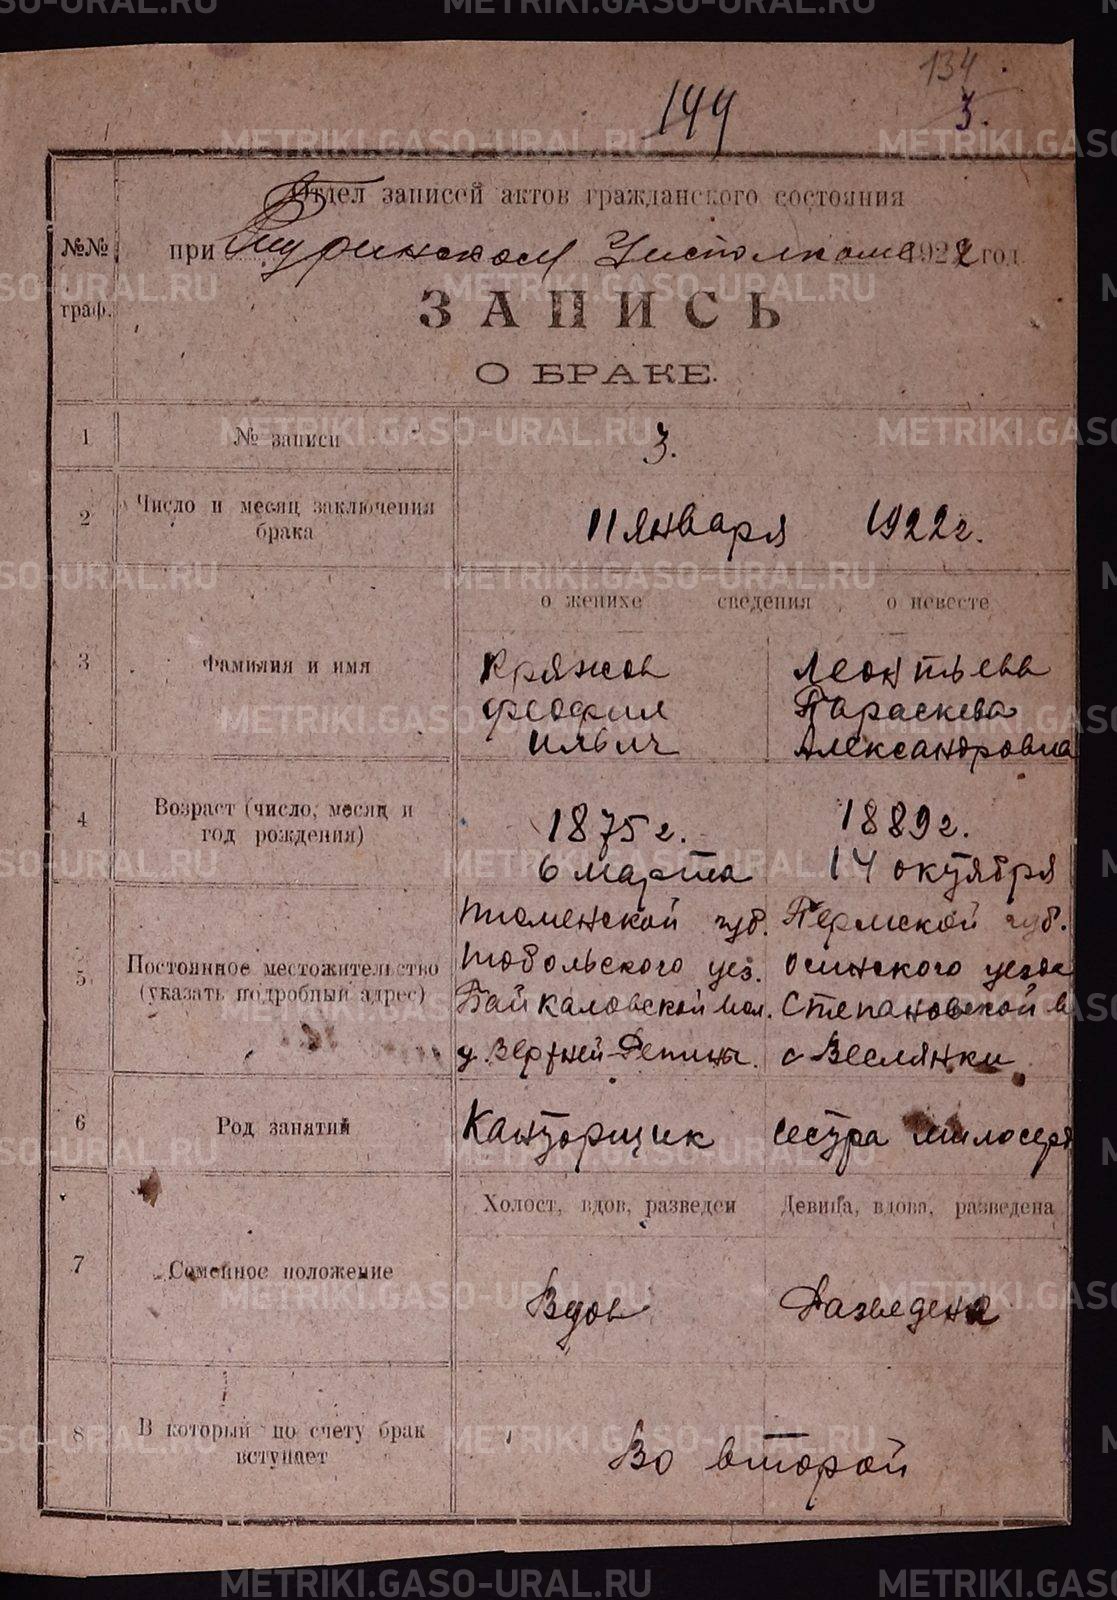 134
3.
144
Отдел записей актов гражданского состояния
№№ граф.
при Туринском Исполкоме 1922 год.
ЗАПИСЬ
О БРАКЕ.
1 № записи 3.
2 Число и месяц заключения брака 11 января 1922 г.
о женихе сведения о невесте
3 Фамилия и имя
Кряжов Леонтьева
Феофил Параскева
Ильич Александровна
4 Возраст (число, месяц и год рождения)
1875 г. 1889 г.
6 марта 14 октября
5 Постоянное местожительство (указать подробный адрес)
Тюменской губ. Пермской губ.
Тобольского уез. Осинского уезда
Байкаловской вол. Степановской в
д. Верхней-Репины с Веслянки
6 Род занятий Канторщик сестра милосерд
Холост, вдов, разведен Девица, вдова, разведена
7 Семейное положение Вдов Разведена
8 В который по счету брак вступает Во второй
METRIKI.GASO-URAL.RU